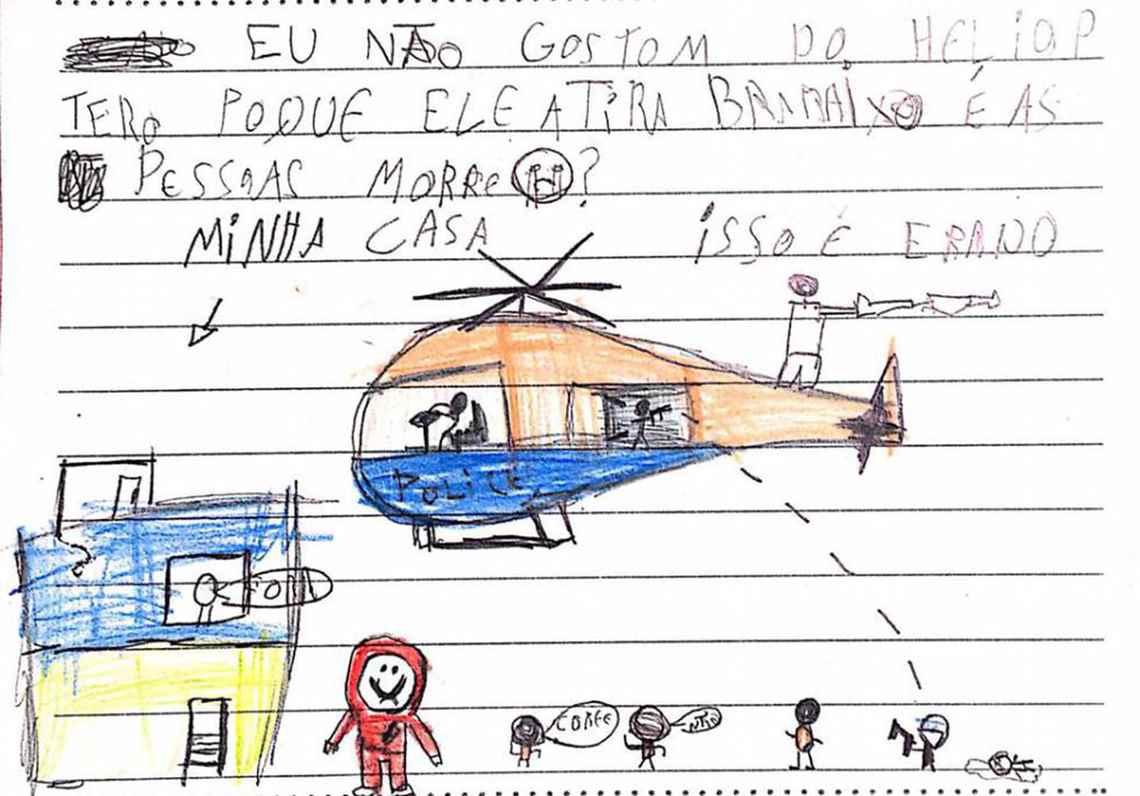 EU NÃO GOSTOM DO HELIOP
TERO POQUE ELE ATIRA BRABAIXO É AS
PESSOAS MORRE ?
MINHA CASA
ISSO É ERADO
POLICE
CORRE
NÃO